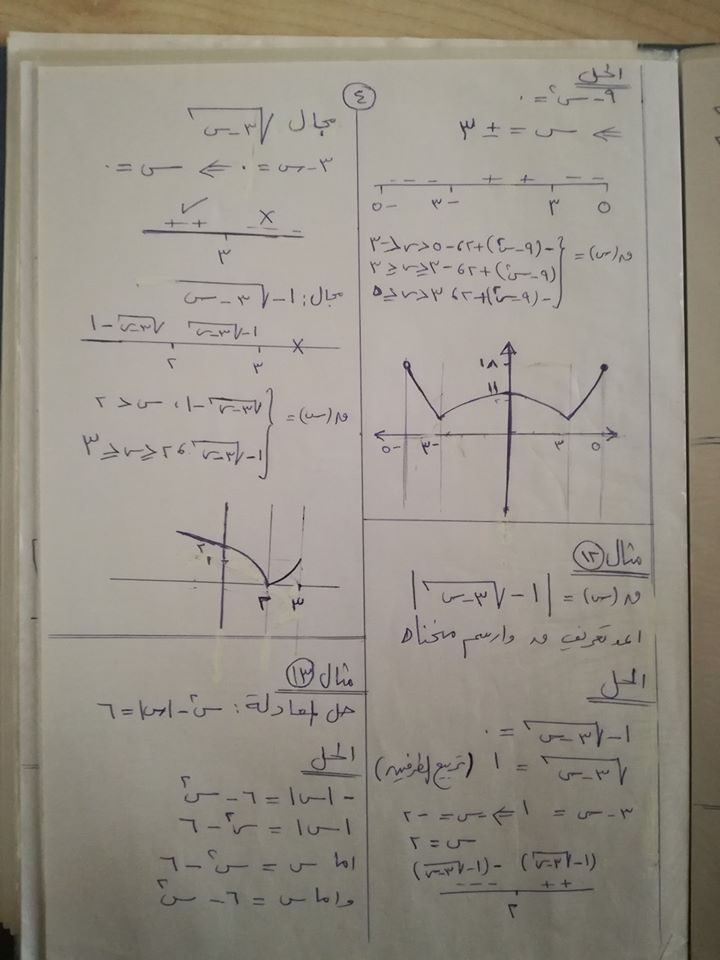 ٤
الحل
٩ - س² = ٠
⇐ س = ± ٣
- - - + + - - -
-٥ -٣ ٣ ٥
ق(س) = { -(٩-س²)+٢، -٥<س<-٣
(٩-س²)+٢، -٣≤س≤٣
-(٩-س²)+٢، ٣<س≤٥
١٨
١١
٢
-٥ -٣ ٣ ٥
مثال ١٢
ق(س) = |١ - √(٣-س)|
اعد تعريف ق وارسم منحناه
الحل
١ - √(٣-س) = ٠
√(٣-س) = ١ (تربيع الطرفين)
٣ - س = ١ ⇐ -س = -٢
س = ٢
-(١-√(٣-س)) (١-√(٣-س))
- - - + +
٢
مجال √(٣-س)
٣-س = ٠ ⇐ س = ٠
✓ + + × - - -
٣
مجال: ١ - √(٣-س)
√(٣-س) - ١ ١-√(٣-س) ×
٢ ٣
ق(س) = { √(٣-س) - ١، س < ٢
١-√(٣-س)، ٢ ≤ س ≤ ٣
٢
١
٢ ٣
مثال ١٣
حل المعادلة: س² - |س| = ٦
الحل
-|س| = ٦ - س²
|س| = س² - ٦
اما س = س² - ٦
واما س = ٦ - س²